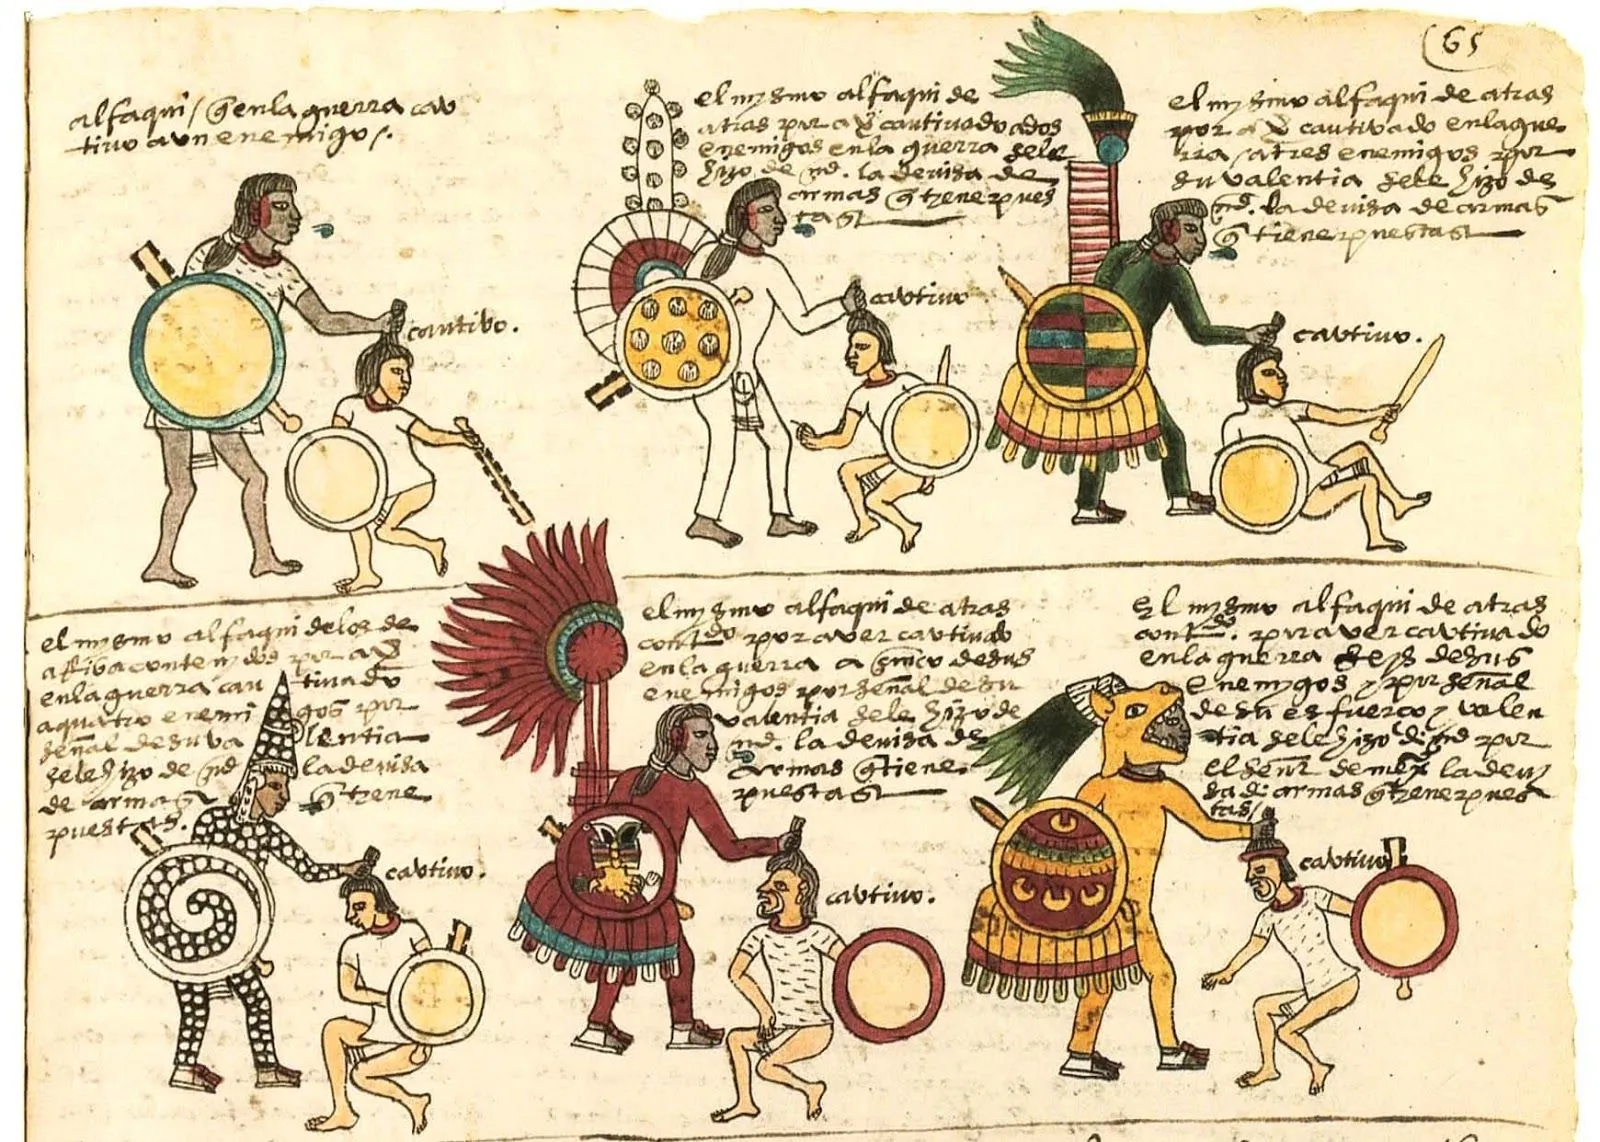 65
alfaqui / q̃ en la guerra cav
tivo a un enemigo /.
cautibo.
el mysmo alfaqui de
atras por a v̄ cautivado a dos
enemigos en la guerra sele
hizo de md. la devisa de
armas q̃ tiene pues
tas
cautivo
el mysmo alfaqui de atras
por a v̄ cautivado en la gue
rra / a tres enemigos por
su valentia sele hizo de
md. la devisa de armas
q̃ tiene puestas
cautivo.
el mysmo alfaqui de los de
arriba contenydos por a v̄
en la guerra cau tivado
a quatro enemi gos por
señal de su va lentia
sele hizo de md la devisa
de armas q̃ tiene
puestas.
cautivo.
el mysmo alfaqui de atras
contdo por aver cautivado
en la guerra a sinco de sus
enemigos por señal de su
valentia sele hizo de
md. la devisa de
armas q̃ tiene
puestas
cautivo.
El mysmo alfaqui de atras
contdo. por aver cautivado
en la guerra seys de sus
enemygos y por señal
de su esfuerço y valen
tia sele hizo de md por
el señor de mexco la devi
sa de armas q̃ tiene pues
tas /
cautivo